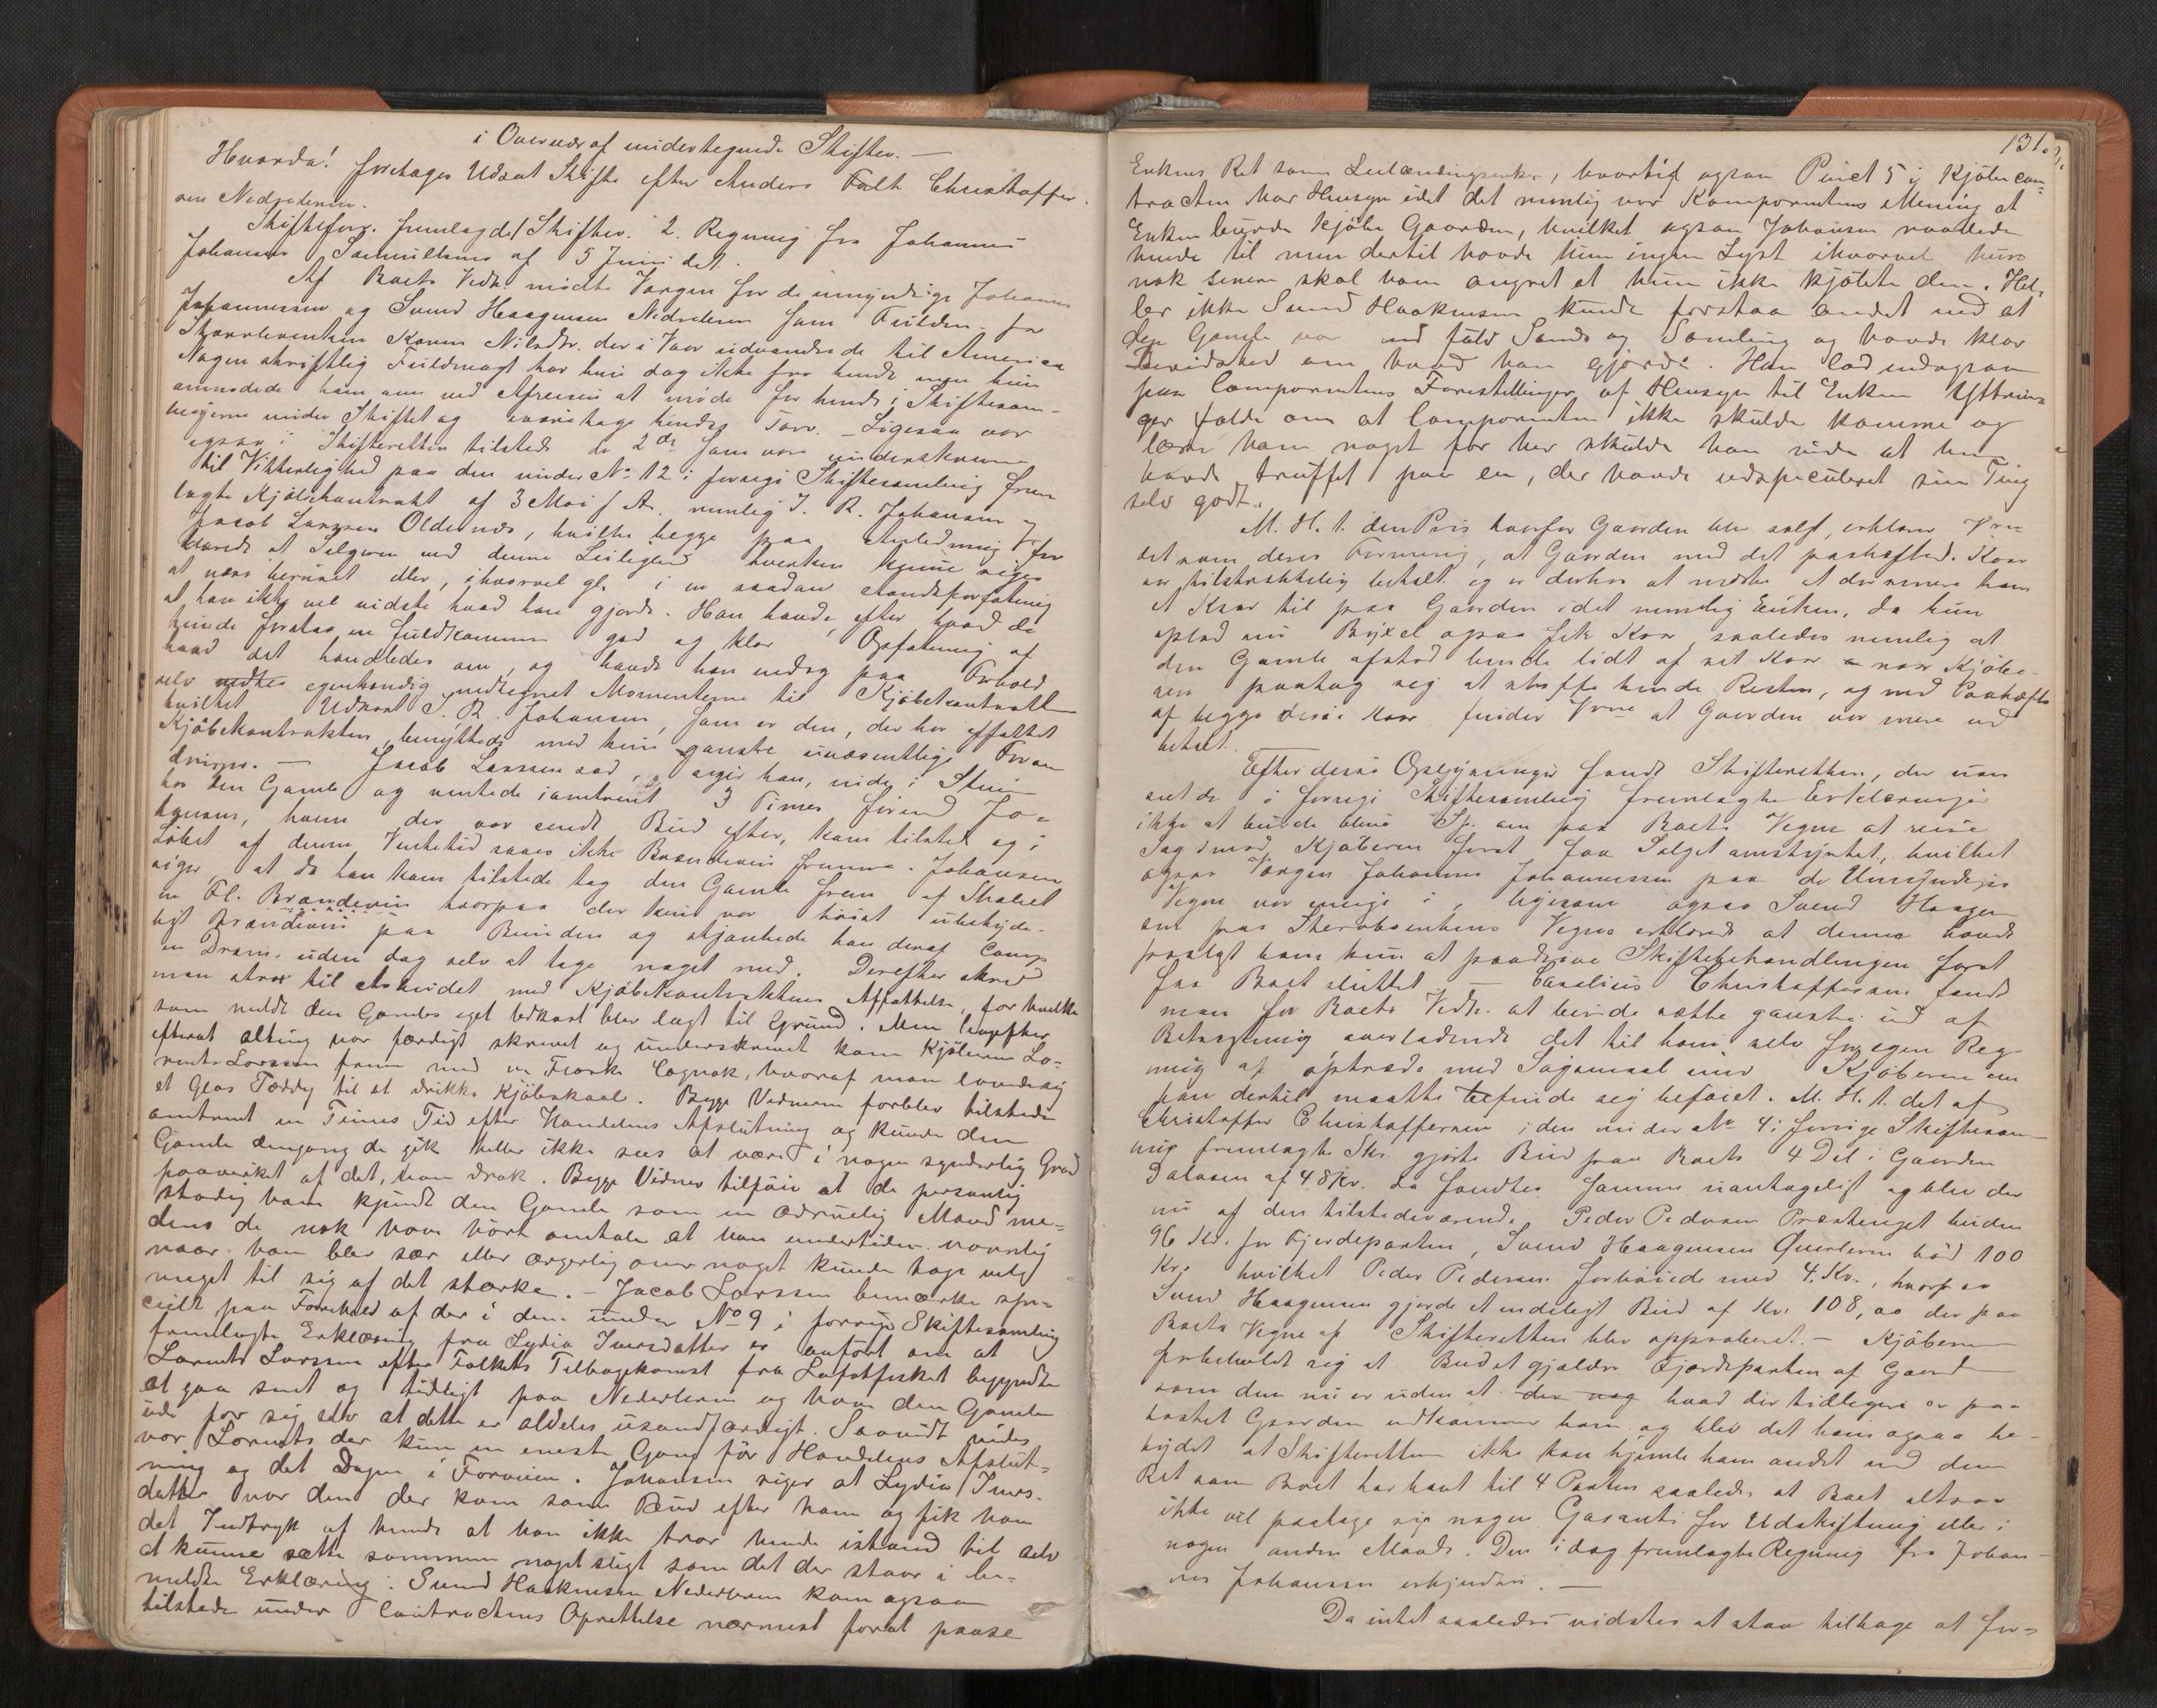 i Overvær af undertegnede Skifter. —
Hvorda! foretages Udsat Skifte efter Anders Falk Christoffer-
sen Nederlevin.
Skifteforv. fremlagde 1 Skifter. 2. Regning fra Johannes
Johansen af 5 Juni ds.
Af Boets Vedk. mødte Værgen for de umyndige Johannes
Johannessen og Svend Haagensen Nederlevin som Fuldm. for
Karen Nilsdtr. der i Vaar udvandrede til America
Nogen skriftlig Fuldmagt har hun dog ikke fra hende men hun
anmodede ham om ved Afreisen at møde for hende i Skiftesam-
lingerne under Skiftet og varetage hendes Tarv. — Ligesaa var
ogsaa i Skifteretten tilstede de 2de som var underskrevne
til Vitterlighed paa den under No 12 i forrige Skiftesamling frem
lagte Kjøbekontrakt af 3 Mai f. A. nemlig J. R. Johansen og
Jacob Larssen Oldernæs, hvilke begge paa Anledning for
klarede at Sælgeren ved denne Leilighed hverken kunne siges
at være beruset eller, ihvorvel gl. i en saadan Aandsforfatning
at han ikke vel vidste hvad han gjorde. Han havde, efter hvad de
kunde forstaa en fuldkommen god og klar Opfatning af
hvad det handledes om, og havde han endog paa Forhold
selv egenhændig nedtegnet Momenterne til Kjøbekontrakten
hvilket Udkast J. R. Johansen, som er den, der har affattet
Kjøbekontrakten, benyttede med kun ganske uvæsentlige Foran
dringer. — Jacob Larssen sad, siger han, inde i Stuen
hos den Gamle og ventede iomtrent 3 Timer førend Jo-
hansen, hvem der var sendt Bud efter, kom tilstede og i
Løbet af denne Ventetid saaes ikke Brændevin fremme. Johansen
siger, at da han kom tilstede tog den Gamle frem af Skabet
en Fl. Brændevin hvorpaa der kun var høist ubetyde-
ligt Brændevin paa Bunden og skjænkede han deraf Comp
en Dram, uden dog selv at tage noget med. Derefter skred
man strax til Arbeidet med Kjøbekontraktens Affattelse, for hvilken
som meldt den Gamles eget Udkast blev lagt til Grund. Men
efterat alting var færdigt skrevet og underskrevet kom Kjøberen Lo-
rents Larssen frem med en Flaske Cognak, hvoraf man lavede sig
et Glas Toddy til at drikke Kjøbskaal. Begge Vidnerne forblev tilstede
omtrent en Times Tid efter Handelens Afslutning og kunde den
Gamle dengang de gik heller ikke sees at være i nogen synderlig Grad
paavirket af det, han drak. Begge Vidner tilføier at de personlig
stadig have kjendt den Gamle som en ædruelig Mand me-
dens de nok have hørt omtale at han undertiden navnlig
naar han blev sær eller ærgerlig over noget kunde tage vel
meget til sig af det stærke. — Jacob Larssen bemærke spe-
cielt paa Foranled af der i den under No 9 i forrige Skiftesamling
fremlagte Erklæring fra Lydia Iversdatter er anført om at
Lorents Larssen efter Folkets Tilbagekomst fra Lofotfisket begyndte
at gaa sent og tidligt paa Nederlevin og have den Gamle
inde for sig selv at dette er aldeles usandfærdigt. Saavidt vides
var Lorents der kun en eneste Gang før Handelens Afslut-
ning og det Dagen i Forveien. Johansen siger at Lydia Ivers-
datter var den der kom som Bud efter ham og fik han
det Indtryk af hende at han ikke tror hende istand til selv
at kunne sætte sammen noget sligt som det der staar i be-
meldte Erklæring. Svend Haakensen Nederlevin kom ogsaa
tilstede under Contractens Oprettelse nærmest forat passe
131.
Enkens Ret som Leilændingsenke, hvortil ogsaa Punct 5 i Kjøbecon-
tracten har Hensyn idet det nemlig var Komparentens Mening at
Enken burde kjøbe Gaarden, hvilket ogsaa Johansen raadede
hende til men dertil havde hun ingen Lyst ihvorvel hun
nok senere skal have angret at hun ikke kjøbte den. Hel-
ler ikke Svend Haakensen kunde forstaa andet end at
den Gamle var ved fuld Sands og Samling og havde klar
Bevidsthed om hvad han gjorde. Han lod endogsaa
paa Comparentens Forestillinger af Hensyn til Enken Yttrin-
ger falde om at Comparenten ikke skulde komme og
lære ham noget for her skulde han vide at han
havde truffet paa en, der havde udspeculeret sin Ting
selv godt.
M. H. t. den Pris hvorfor Gaarden blev solgt, erklærer Vdne
det som deres Formening, at Gaarden med det paaheftede Kaar
var tilstrækkelig betalt og er derhos at mærke at der senere kom
et Kaar til paa Gaarden idet nemlig Enken, da hun
oplod sin Bøxel ogsaa fik Kaar, saaledes nemlig at
den Gamle afstod hende lidt af sit Kaar naar Kjøbe-
ren paatog sig at skaffe hende Resten, og med Paahæftelse
af begge disse Kaar finder Vdne at Gaarden var mere end
betalt.
Efter disse Oplysninger fandt Skifteretten, der uan
seet de i forrige Skiftesamling fremlagte Erklæringer
ikke at kunde blive Sp. om paa Boets Vegne at reise
Sag imod Kjøberen forat faa Salget omstyrtet, hvilket
ogsaa Værgen Johannes Johannessen paa de Umyndiges
Vegne var enige i, ligesom ogsaa Svend Haagen-
sen paa Vegne erklærede at denne havde
paalagt ham kun at paadrive Skiftebehandlingen forat
faa Boet sluttet — Caselius Christoffersens fandt
man for Boets Vedk. at kunde sætte ganske ud af
Betragtning, overladende det til ham selv for egen Reg-
ning at optræde med Søgsmaal mod Kjøberen om
han dertil maatte befinde sig beføiet. M. H. t. det af
Christoffer Christoffersen i den under No 4 i forrige Skiftesam-
ling fremlagte Skr. gjorte Bud paa Boets 4 Del i Gaarden
Dalaasen af 48 Kr. da fandtes samme uantageligt og blev der
nu af den tilstedeværende Peder Pedersen Præstenget buden
96 Kr. for Fjerdeparten, Svend Haagensen bød 100
Kr. hvilket Peder Pedersen forhøiede med 4. Kr., hvorpaa
Svend Haagensen gjorde et endeligt Bud af Kr. 108,00 der paa
Boets Vegne af Skifteretten blev approberet. — Kjøberen
forbeholdt sig at Budet gjælder Fjerdeparten af Gaard
som den nu er uden at hvad der tidligere er paa-
kostet Gaarden vedkommer ham, og blev det ham ogsaa be-
tydet at Skifteretten ikke kan hjemle ham andet end den
Ret som Boet har havt til 4 Parten saaledes at Boet altsaa
ikke vil paatage sig nogen Garanti for Udskiftning eller i
nogen anden Maade. Den i dag fremlagte Regning fra Johan-
nes Johansen erkjendtes. —
Da intet saaledes vidstes at staa tilbage at for=